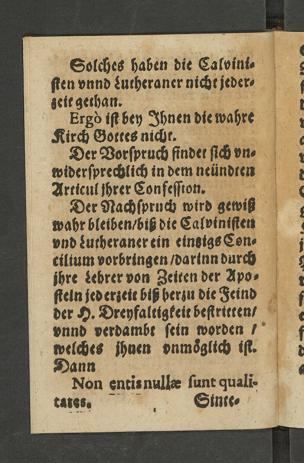 Solches haben die Calvini-
sten vnnd Lutheraner nicht jeder-
zeit gethan.
Ergò ist bey Ihnen die wahre
Kirch Gottes nicht.
Der Vorspruch findet sich vn-
widersprechlich in dem neündten
Articul jhrer Confession.
Der Nachspruch wird gewiß
wahr bleiben/biß die Calvinisten
vnd Lutheraner ein eintzigs Con-
cilium vorbringen/darinn durch
jhre Lehrer von Zeiten der Apo-
steln jederzeit biß herzu die Feind
der H. Dreyfaltigkeit bestritten/
vnnd verdambt sein worden /
welches jhnen vnmöglich ist.
Dann
Non entis nullæ sunt quali-
tates.
Sinte-